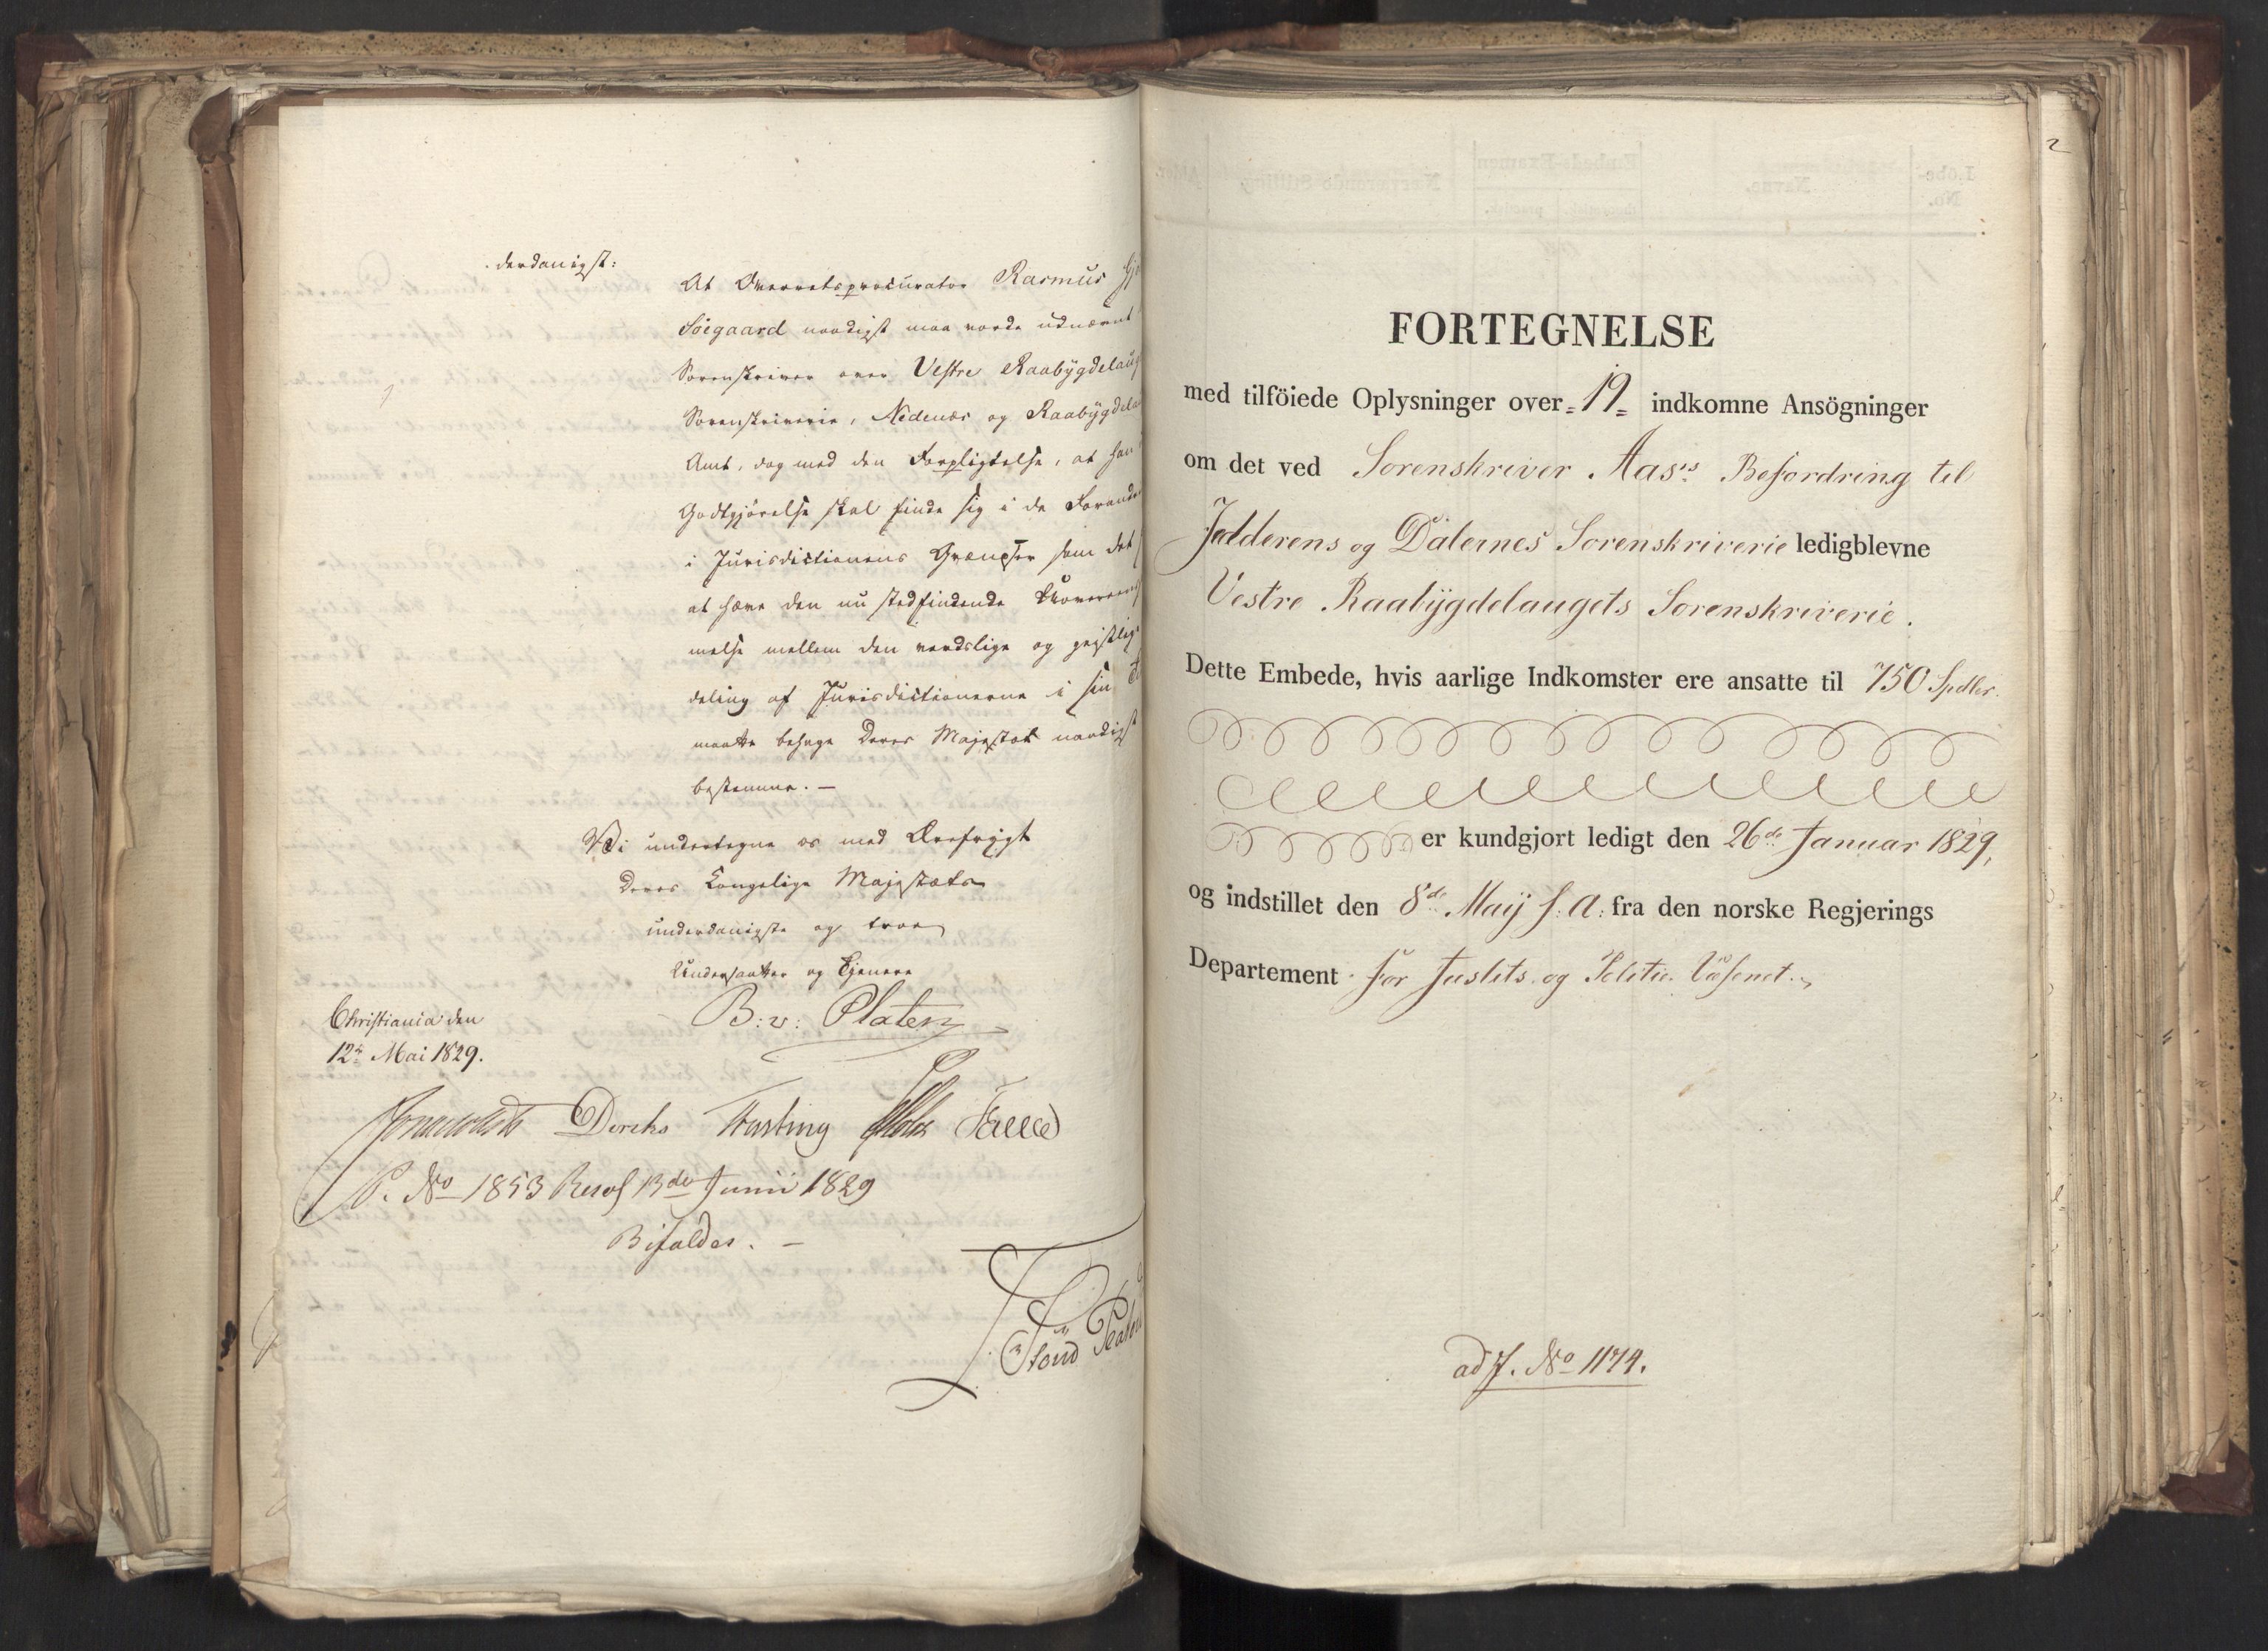 derdanigst:
At Overretsprocurator Rasmus
Söegaard naadigst maa vorde udnævnt
Sorenskriver over Vestre Raabÿgdelaug
Sorenskriverie, Nedenæs og Raabÿgdela
Amt, dog med den Forpligtelse, at han
Godtgjörelse skal finde sig i de Forandr
i Jurisdictionens Grændser som det
at hæve den nu stedfindende
melse mellem den verdslige og geistlig
deling af Jurisdictionerne i sin
maatte behage Deres Majestæt naadigst
bestemme. —
Vi undertegne os med Ærefrygt
Deres Kongelige Majestæts
underdanigste og troe
Undersaatter og Tjenere
B: v: Platen
Christiania den
12te Mai 1829.
Diriks Fasting Holst
P. No 1853 Resol 13de Junii 1829
Bifaldes. —
FORTEGNELSE
med tilföiede Oplysninger over = 19 = indkomne Ansögninger
om det ved Sorenskriver Aas's Befordring til
Jædderens og Dalernes Sorenskriverie ledigblevne
Vestre Raabÿgdelaugets Sorenskriverie.
Dette Embede, hvis aarlige Indkomster ere ansatte til 750 Spdlr.
er kundgjort ledigt den 26de Januar 1829,
og indstillet den 8de Maij s: A: fra den norske Regjerings
Departement for Justits og Politie Væsenet.
ad J. No 1174.
2